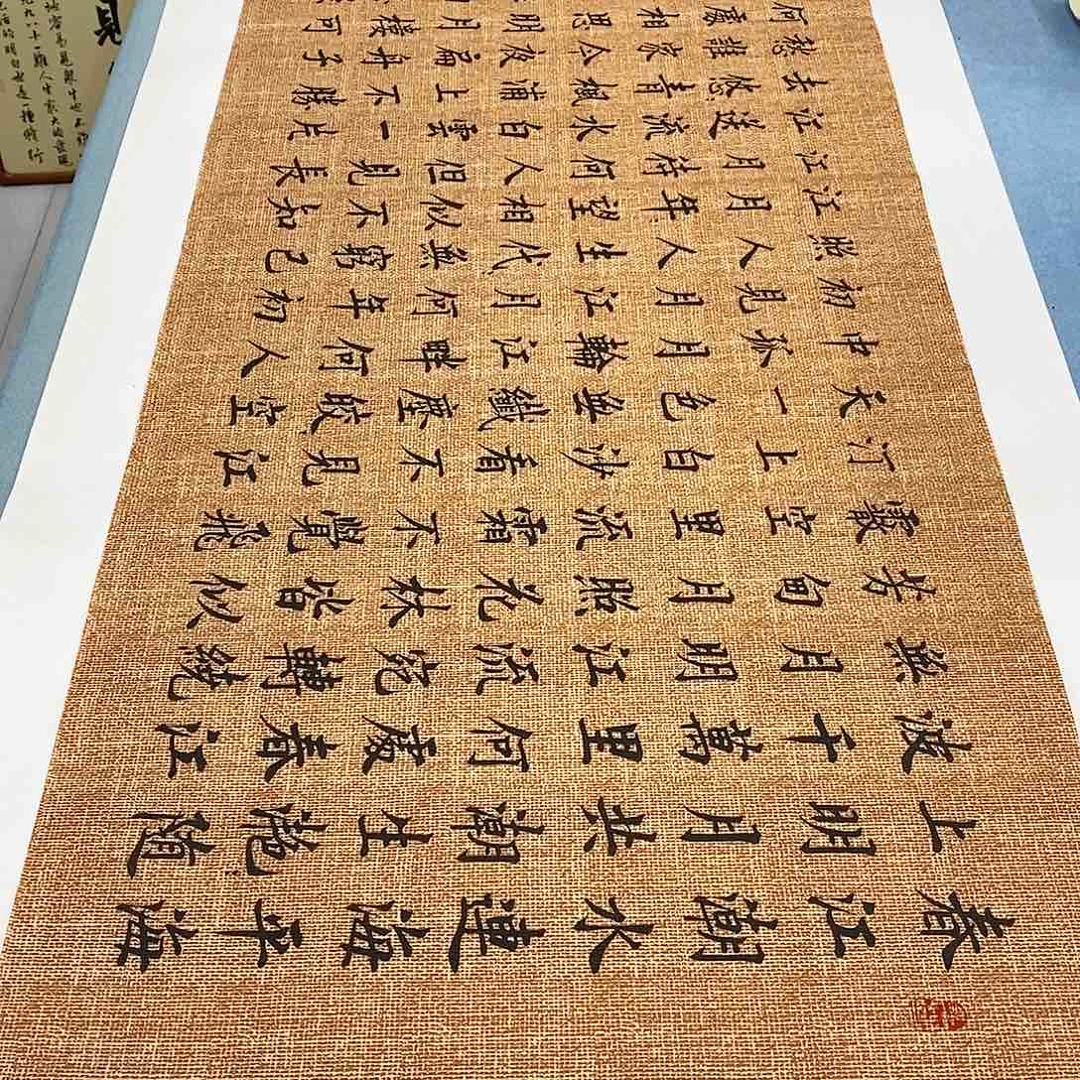 春江潮水連海平海
上明月共潮生灩隨
波千萬里何處春江
無月明江流宛轉繞
芳甸月照花林皆似
霰空里流霜不覺飛
汀上白沙看不見江
天一色無纖塵皎空
中孤月輪江畔何人
初見月江月何年初
照人人生代無窮已
江月年望相似不知
江月待何人但見長
江送流水白雲一片
去悠青楓浦上不勝
愁誰家今夜扁舟子
何處相思明月樓可